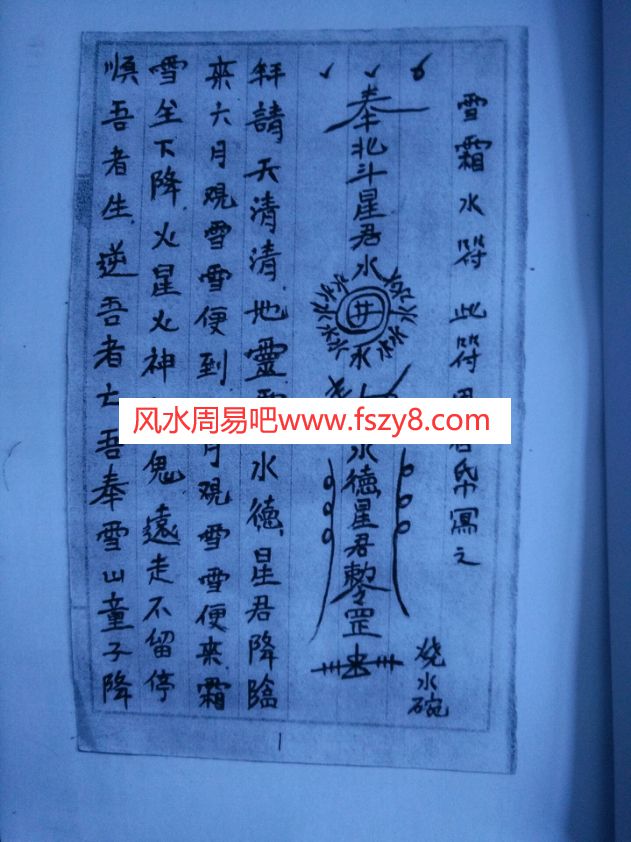 雪霜水符 此符帋寫之
烧水碗
奉北斗星君水
井
水水水水水水水水水
水德星君勅罡
拜請天清清地靈 水德星君降臨
來六月观雪雪便到 月观雪雪便来霜
雪坐下降火星火神 鬼遠走不留停
順吾者生逆吾者亡吾奉雪山童子降
1
风水周易吧www.fszy8.com